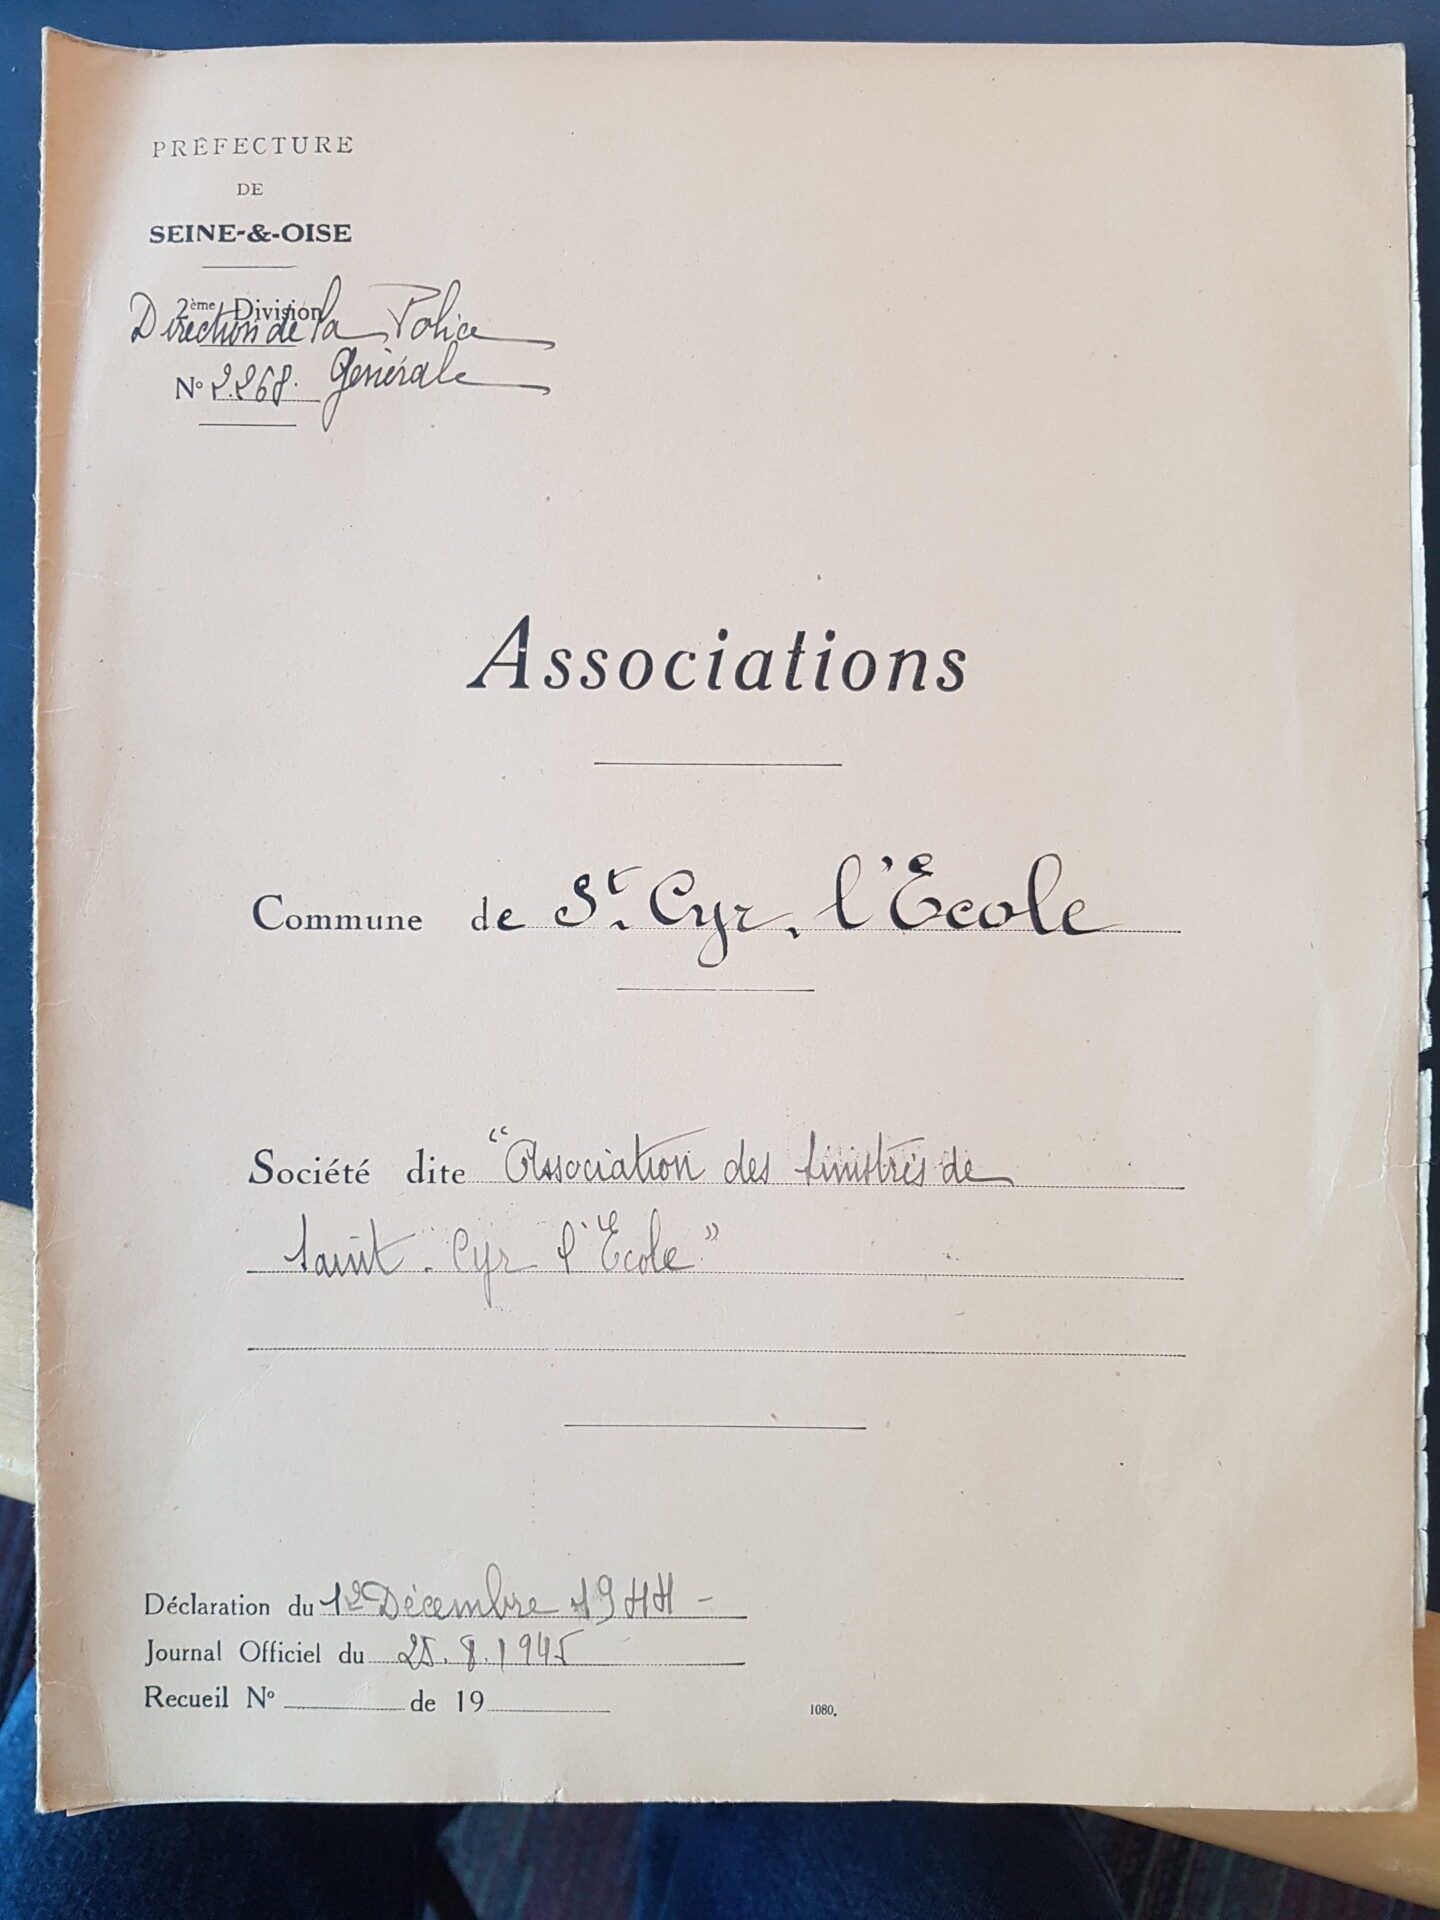 PRÉFECTURE
DE
SEINE-&-OISE
2ème Division
Direction de la Police
Générale
N° 2.268.
Associations
Commune de St. Cyr. l'Ecole
Société dite "Association des sinistrés de
Saint. Cyr l'Ecole"
Déclaration du 12 Décembre 1944 -
Journal Officiel du 25.8.1945
Recueil N° de 19
1080.